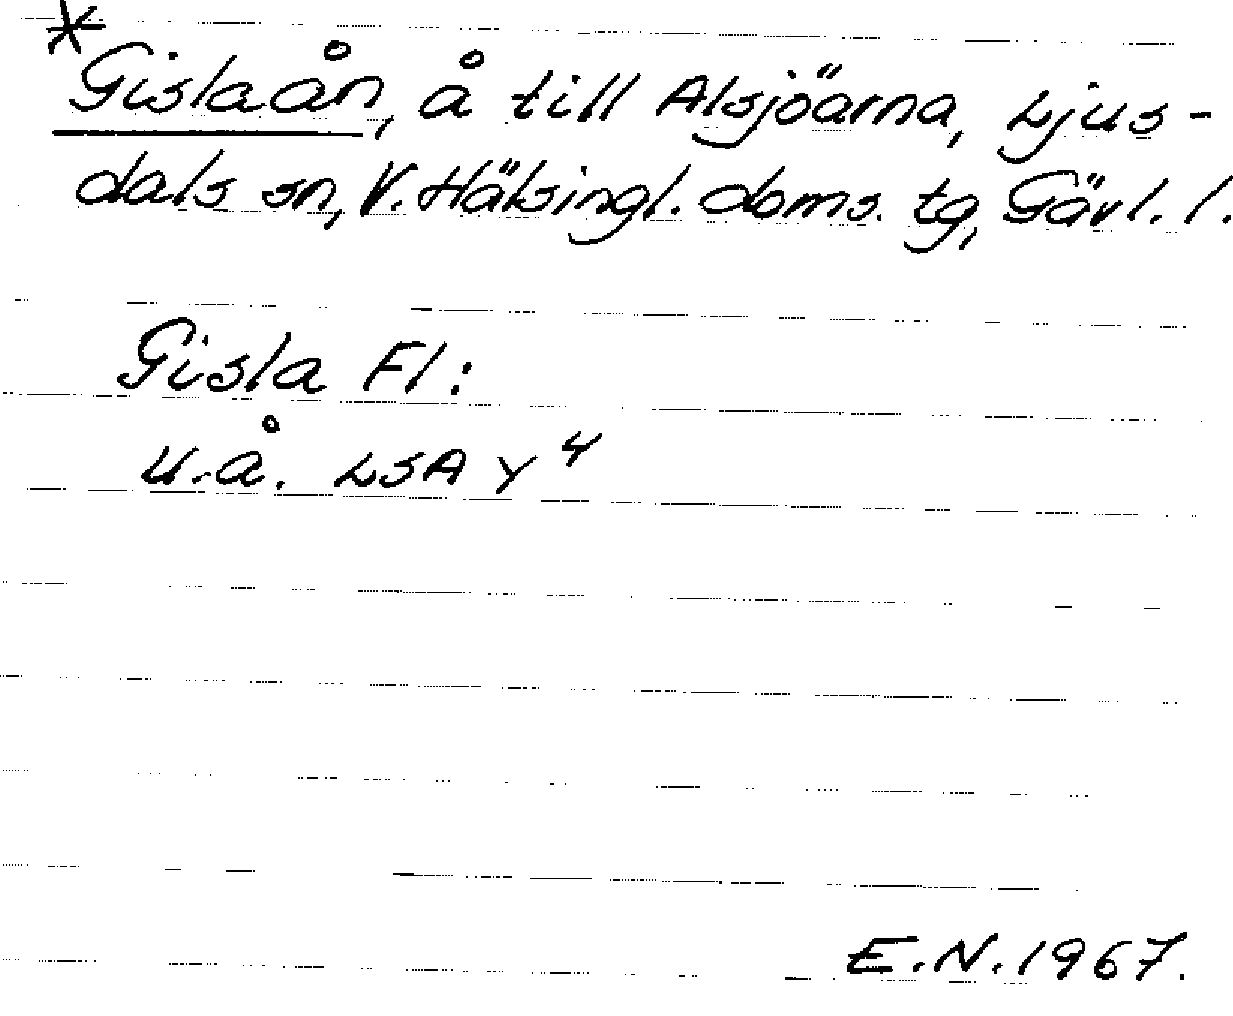 *
Gislaån, å till Alsjöarna, Ljus-
dals sn, V. Hälsingl. doms. tg, Gävl. l.
Gisla Fl:
u.å. LSA Y 4
E.N. 1967.